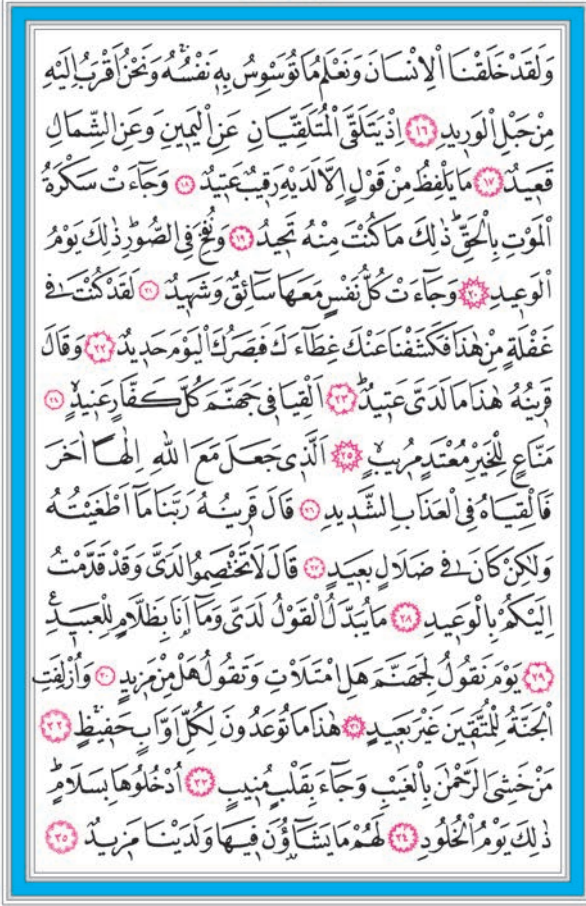 وَلَقَدْ خَلَقْنَا الْاِنْسَانَ وَنَعْلَمُ مَا تُوَسْوِسُ بِهٖ نَفْسُهُۚ وَنَحْنُ اَقْرَبُ اِلَيْهِ
مِنْ حَبْلِ الْوَرٖيدِ ﴿١٦﴾ اِذْ يَتَلَقَّى الْمُتَلَقِّيَانِ عَنِ الْيَمٖينِ وَعَنِ الشِّمَالِ
قَعٖيدٌ ﴿١٧﴾ مَا يَلْفِظُ مِنْ قَوْلٍ اِلَّا لَدَيْهِ رَقٖيبٌ عَتٖيدٌ ﴿١٨﴾ وَجَٓاءَتْ سَكْرَةُ
الْمَوْتِ بِالْحَقِّؕ ذٰلِكَ مَا كُنْتَ مِنْهُ تَحٖيدُ ﴿١٩﴾ وَنُفِخَ فِى الصُّورِؕ ذٰلِكَ يَوْمُ
الْوَعٖيدِ ﴿٢٠﴾ وَجَٓاءَتْ كُلُّ نَفْسٍ مَعَهَا سَٓائِقٌ وَشَهٖيدٌ ﴿٢١﴾ لَقَدْ كُنْتَ فٖى
غَفْلَةٍ مِنْ هٰذَا فَكَشَفْنَا عَنْكَ غِطَٓاءَكَ فَبَصَرُكَ الْيَوْمَ حَدٖيدٌ ﴿٢٢﴾ وَقَالَ
قَرٖينُهُ هٰذَا مَا لَدَىَّ عَتٖيدٌؕ ﴿٢٣﴾ اَلْقِيَا فٖى جَهَنَّمَ كُلَّ كَفَّارٍ عَنٖيدٍۙ ﴿٢٤﴾
مَنَّاعٍ لِلْخَيْرِ مُعْتَدٍ مُرٖيبٍۙ ﴿٢٥﴾ اَلَّذٖى جَعَلَ مَعَ اللّٰهِ اِلٰهًا اٰخَرَ
فَاَلْقِيَاهُ فِى الْعَذَابِ الشَّدٖيدِ ﴿٢٦﴾ قَالَ قَرٖينُهُ رَبَّنَا مَٓا اَطْغَيْتُهُ
وَلٰكِنْ كَانَ فٖى ضَلَالٍ بَعٖيدٍ ﴿٢٧﴾ قَالَ لَا تَخْتَصِمُوا لَدَىَّ وَقَدْ قَدَّمْتُ
اِلَيْكُمْ بِالْوَعٖيدِ ﴿٢٨﴾ مَا يُبَدَّلُ الْقَوْلُ لَدَىَّ وَمَٓا اَنَا۬ بِظَلَّامٍ لِلْعَبٖيدِࣖ
﴿٢٩﴾ يَوْمَ نَقُولُ لِجَهَنَّمَ هَلِ امْتَلَاْتِ وَتَقُولُ هَلْ مِنْ مَزٖيدٍ ﴿٣٠﴾ وَاُزْلِفَتِ
الْجَنَّةُ لِلْمُتَّقٖينَ غَيْرَ بَعٖيدٍ ﴿٣١﴾ هٰذَا مَا تُوعَدُونَ لِكُلِّ اَوَّابٍ حَفٖيظٍۚ ﴿٣٢﴾
مَنْ خَشِىَ الرَّحْمٰنَ بِالْغَيْبِ وَجَٓاءَ بِقَلْبٍ مُنٖيبٍ ﴿٣٣﴾ اُدْخُلُوهَا بِسَلَامٍؕ
ذٰلِكَ يَوْمُ الْخُلُودِ ﴿٣٤﴾ لَهُمْ مَا يَشَٓاؤُ۫نَ فٖيهَا وَلَدَيْنَا مَزٖيدٌ ﴿٣٥﴾